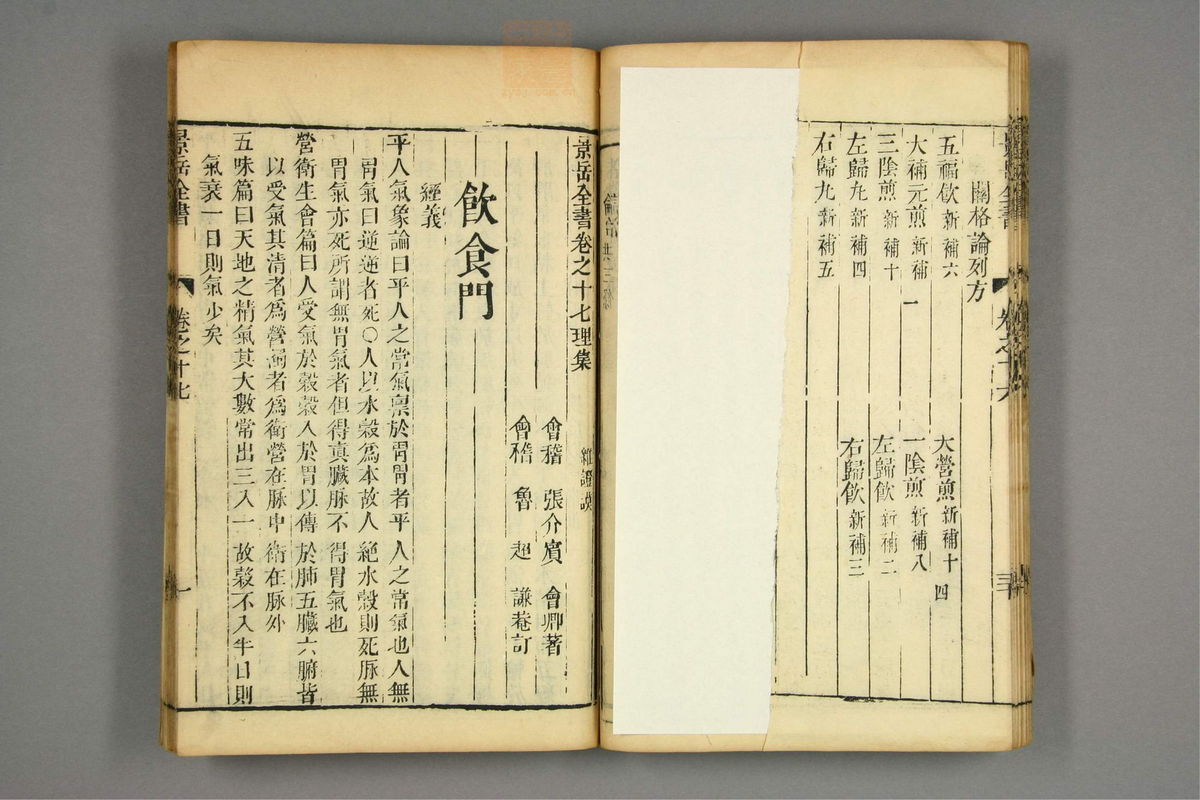 關格論列方
五福飲新補六
大營煎新補十四
大補元煎新補一
一陰煎新補八
三陰煎新補十
左歸飲新補二
左歸丸新補四
右歸飲新補三
右歸丸新補五
景岳全書卷之十七理集
雜證謨
會稽 張介賓 會卿著
會稽 魯超 謙菴訂
飲食門
經義
平人氣象論曰平人之常氣禀於胃胃者平人之常氣也人無
胃氣曰逆逆者死○人以水穀為本故人絕水穀則死脉無
胃氣亦死所謂無胃氣者但得真臟脉不得胃氣也
營衛生會篇曰人受氣於穀穀入於胃以傳於肺五臟六腑皆
以受氣其清者爲營濁者爲衛營在脉中衛在脉外
五味篇曰天地之精氣其大數常出三入一故穀不入半日則
氣衰一日則氣少矣
景岳全書
卷之十七
一